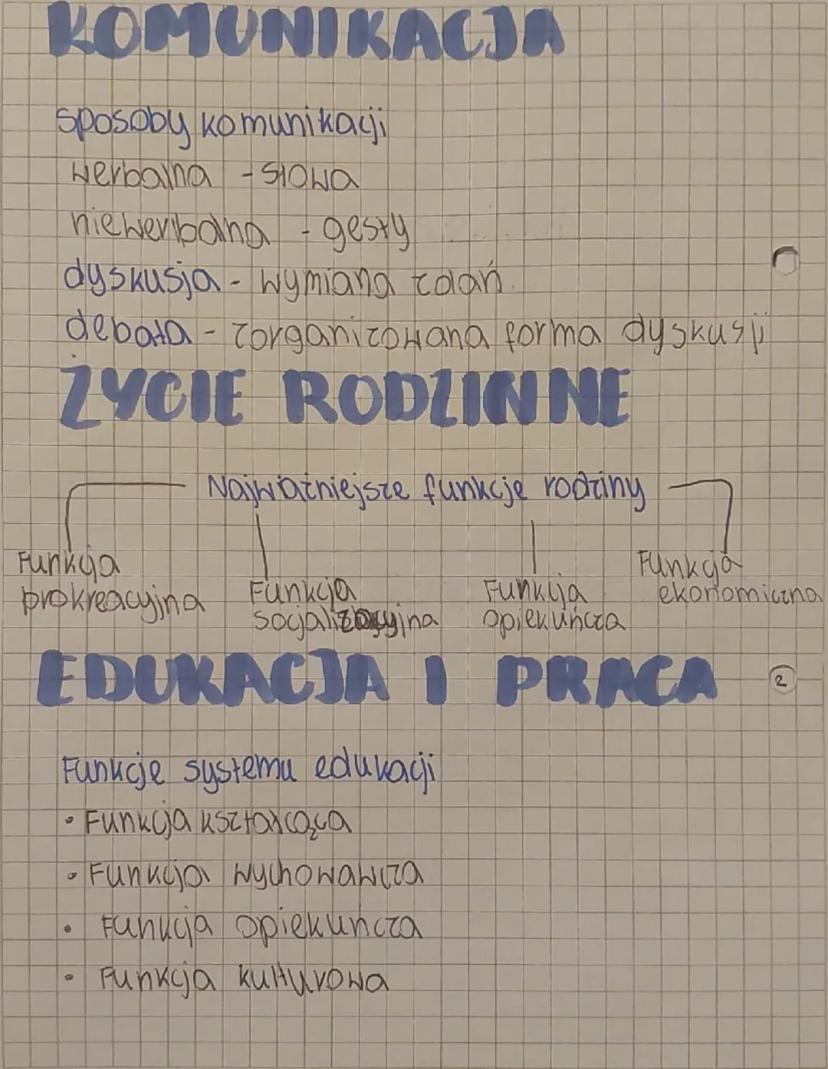 KOMUNIKACJA
sposoby komunikacji
werbalna - słowa
niewerbalna - gesty
dyskusja - wymiana zdań
debata - zorganizowana forma dyskusji
ŻYCIE RODZINNE
Najważniejsze funkcje rodziny
Funkcja prokreacyjna
Funkcja socjalizacyjna
Funkcja opiekuńcza
Funkcja ekonomiczna
EDUKACJA I PRACA
2
Funkcje systemu edukacji
• Funkcja kształcąca
• Funkcja wychowawcza
• Funkcja opiekuńcza
• Funkcja kulturowa